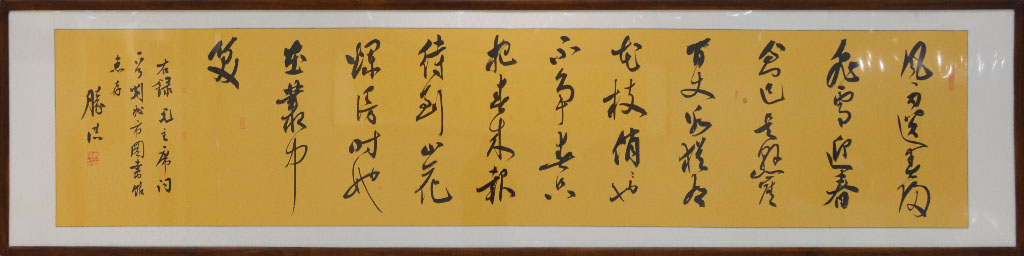 风雨送春归
飛雪迎春
到已是悬崖
百丈冰犹有
花枝俏〻也
不争春只
把春来报
待到山花
烂漫时她
在叢中
笑
右錄毛主席词
市圖書馆
惠存